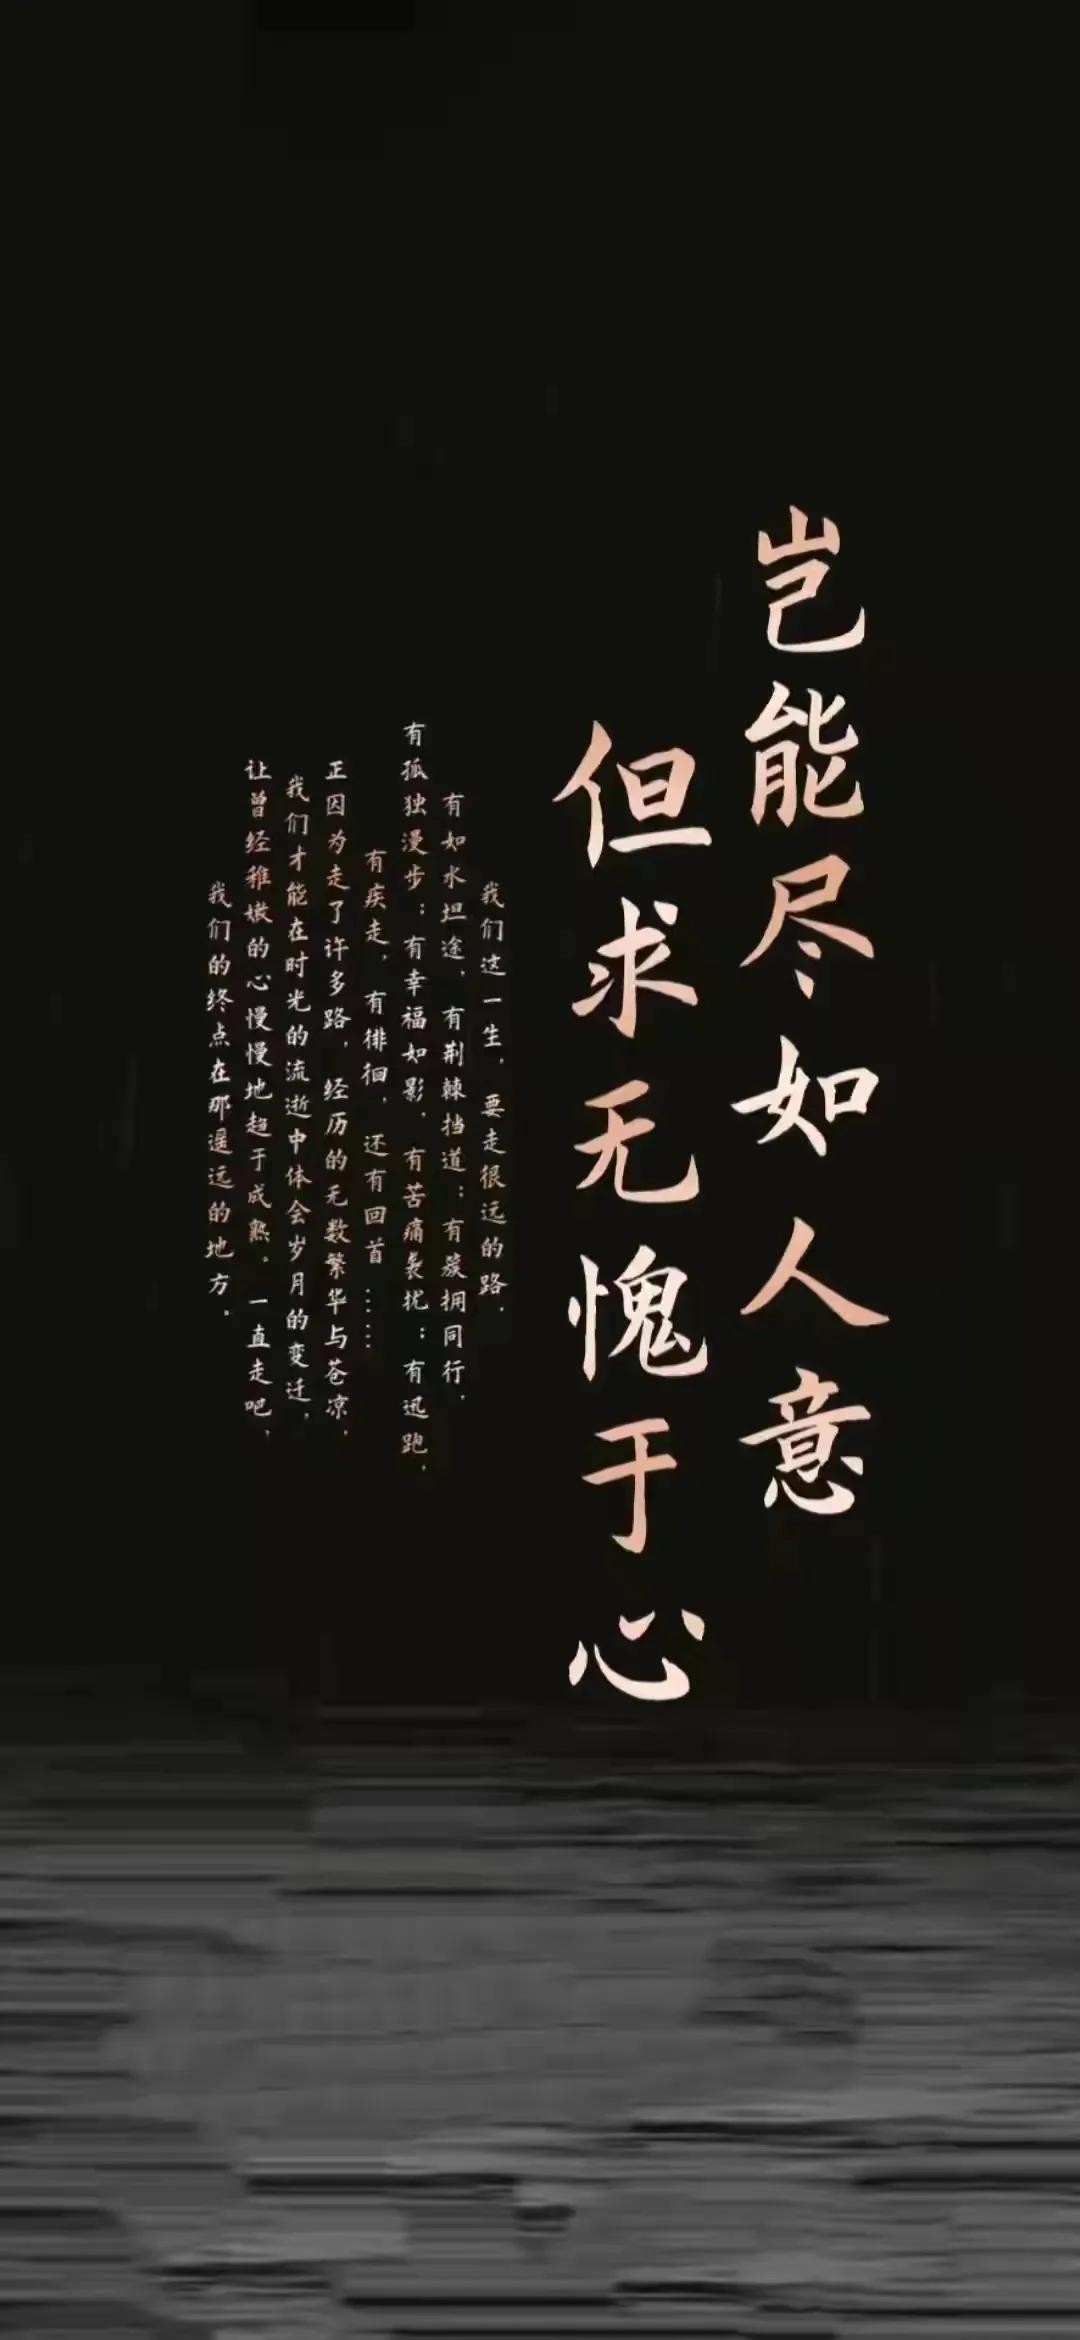 岂能尽如人意
但求无愧于心
我们这一生，要走很远的路，
有如水坦途，有荆棘挡道；有簇拥同行，
有孤独漫步；有幸福如影，有苦痛袭扰；有迅跑，
有疾走，有徘徊，还有回首……
正因为走了许多路，经历的无数繁华与苍凉，
我们才能在时光的流逝中体会岁月的变迁，
让曾经稚嫩的心慢慢地趋于成熟。一直走吧，
我们的终点在那遥远的地方。